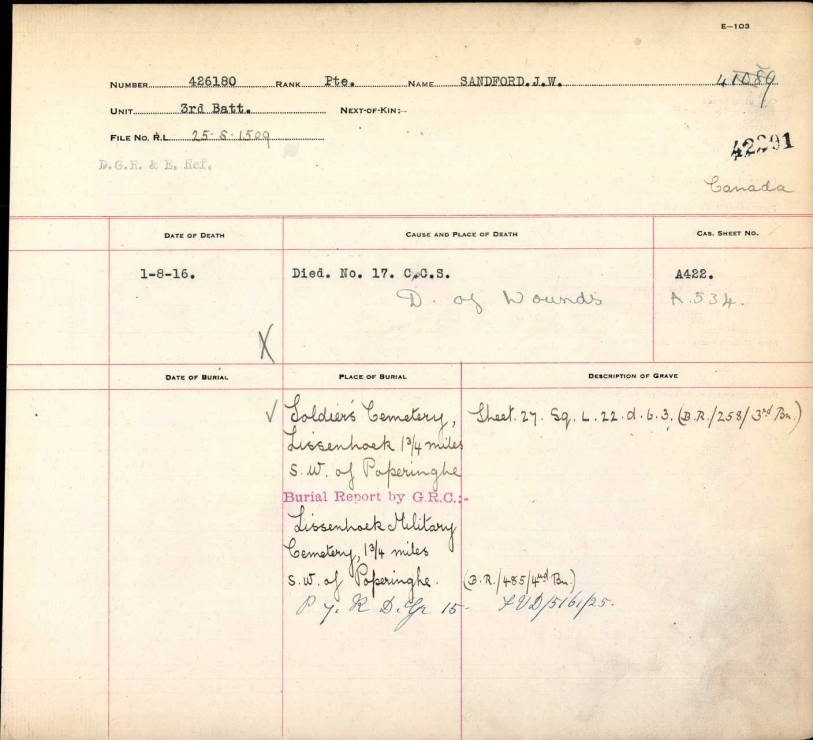 E–103
NUMBER 426180 RANK Pte. NAME SANDFORD.J.W.
UNIT 3rd Batt. NEXT-OF-KIN:–
FILE No. R.L. 25-S-1509
42291
D.G.R. & E. Ref.
Canada
DATE OF DEATH CAUSE AND PLACE OF DEATH CAS. SHEET NO.
1-8-16. Died. No. 17. C.C.S. A422.
D. of Wounds A.534.
X
DATE OF BURIAL PLACE OF BURIAL DESCRIPTION OF GRAVE
✓ Soldier's Cemetery, Sheet. 27. Sq. L. 22. d. 6. 3. (B.R./258/3rd Bn.)
Lissenhoek 1¾ miles
S.W. of Poperinghe
Burial Report by G.R.C.:-
Lissenhoek Military
Cemetery, 1¾ miles
S.W. of Poperinghe. (B.R./485/4nd Bn.)